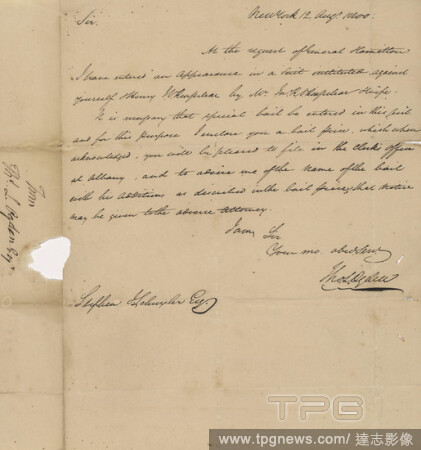 New York 12 Augt. 1800.
Sir.
At the request of General Hamilton
I have entered an Appearance in a Suit instituted against
yourself & Henry
by Mr.
It is necessary that special bail be entered in this suit
and for this purpose I enclose you a bail piece, which when
acknowledged, you will be pleased to file in the Clerk's office
at Albany, and to advise me of the name of the bail
with his additions as described in the bail piece, that notice
may be given to the adverse attorney.
I am Sir
Your mo. obed. Serv
Tho. L. Ogden
Stephen Schuyler Esq.
From
Tho. L. Ogden Esqr.
TPG
www.tpgnews.com/達志影像